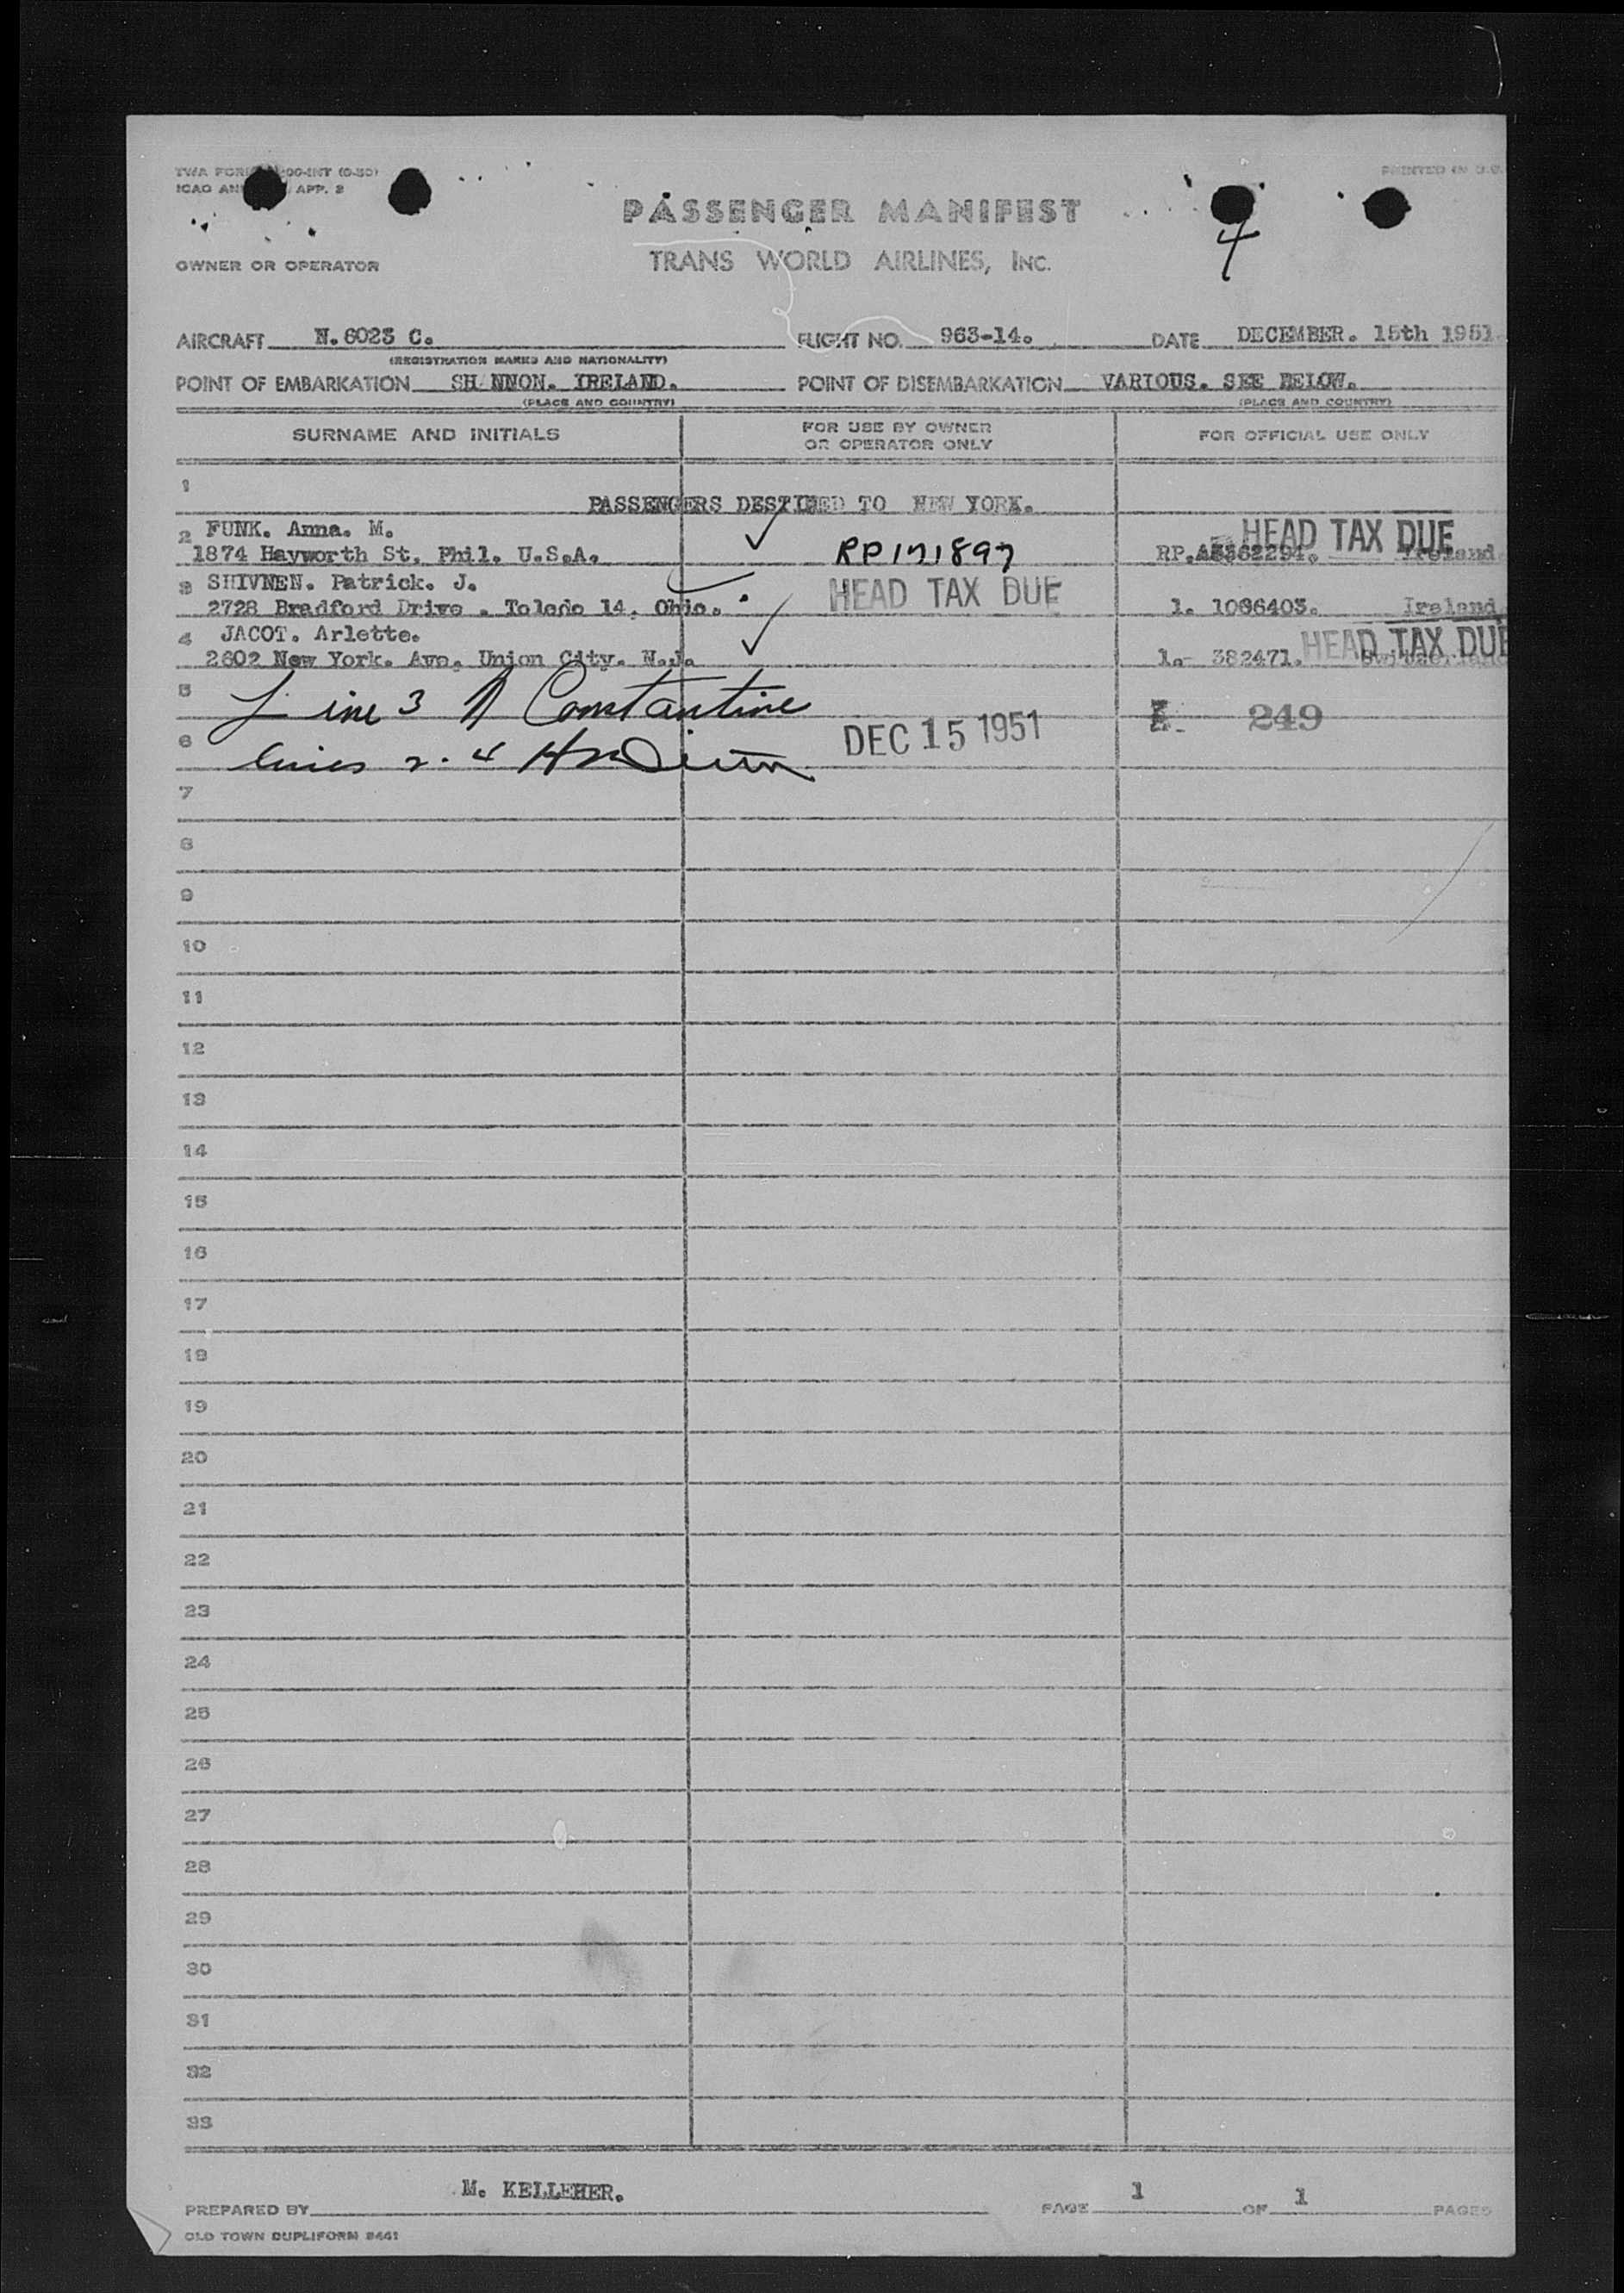 TWA FORM 00-INT (0-50)
ICAO AN APP. 2
PRINTED IN U.S.
PASSENGER MANIFEST
4
OWNER OR OPERATOR
TRANS WORLD AIRLINES, INC.
AIRCRAFT N.6023 C. FLIGHT NO. 963-14. DATE DECEMBER. 15th 1951.
(REGISTRATION MARKS AND NATIONALITY)
POINT OF EMBARKATION SH NNON. IRELAND. POINT OF DISEMBARKATION VARIOUS. SEE BELOW.
(PLACE AND COUNTRY) (PLACE AND COUNTRY)
SURNAME AND INITIALS FOR USE BY OWNER OR OPERATOR ONLY FOR OFFICIAL USE ONLY
1
PASSENGERS DESTINED TO NEW YORK.
2 FUNK. Anna. M. HEAD TAX DUE
1874 Hayworth St. Phil. U.S.A. RP171897 RP.A5362294. Ireland.
3 SHIVNEN. Patrick. J. HEAD TAX DUE
2728 Bradford Drive. Toledo 14. Ohio. 1. 1086403. Ireland.
4 JACOT. Arlette. HEAD TAX DUE
2602 New York. Ave. Union City. N.J. 1.- 382471. Switzerland
5 Line 3 A Constantine 249
6 lines 2. 4 DEC 15 1951
7
8
9
10
11
12
13
14
15
16
17
18
19
20
21
22
23
24
25
26
27
28
29
30
31
32
33
PREPARED BY M. KELLEHER. PAGE 1 OF 1 PAGES
OLD TOWN DUPLIFORM 8441